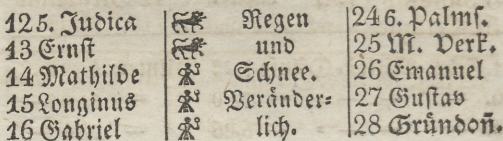 12 5. Judica Regen 24 6. Palms.
13 Ernst und 25 M. Verk.
14 Mathilde Schnee. 26 Emanuel
15 Longinus Veränder= 27 Gustav
16 Gabriel lich. 28 Gründoñ.